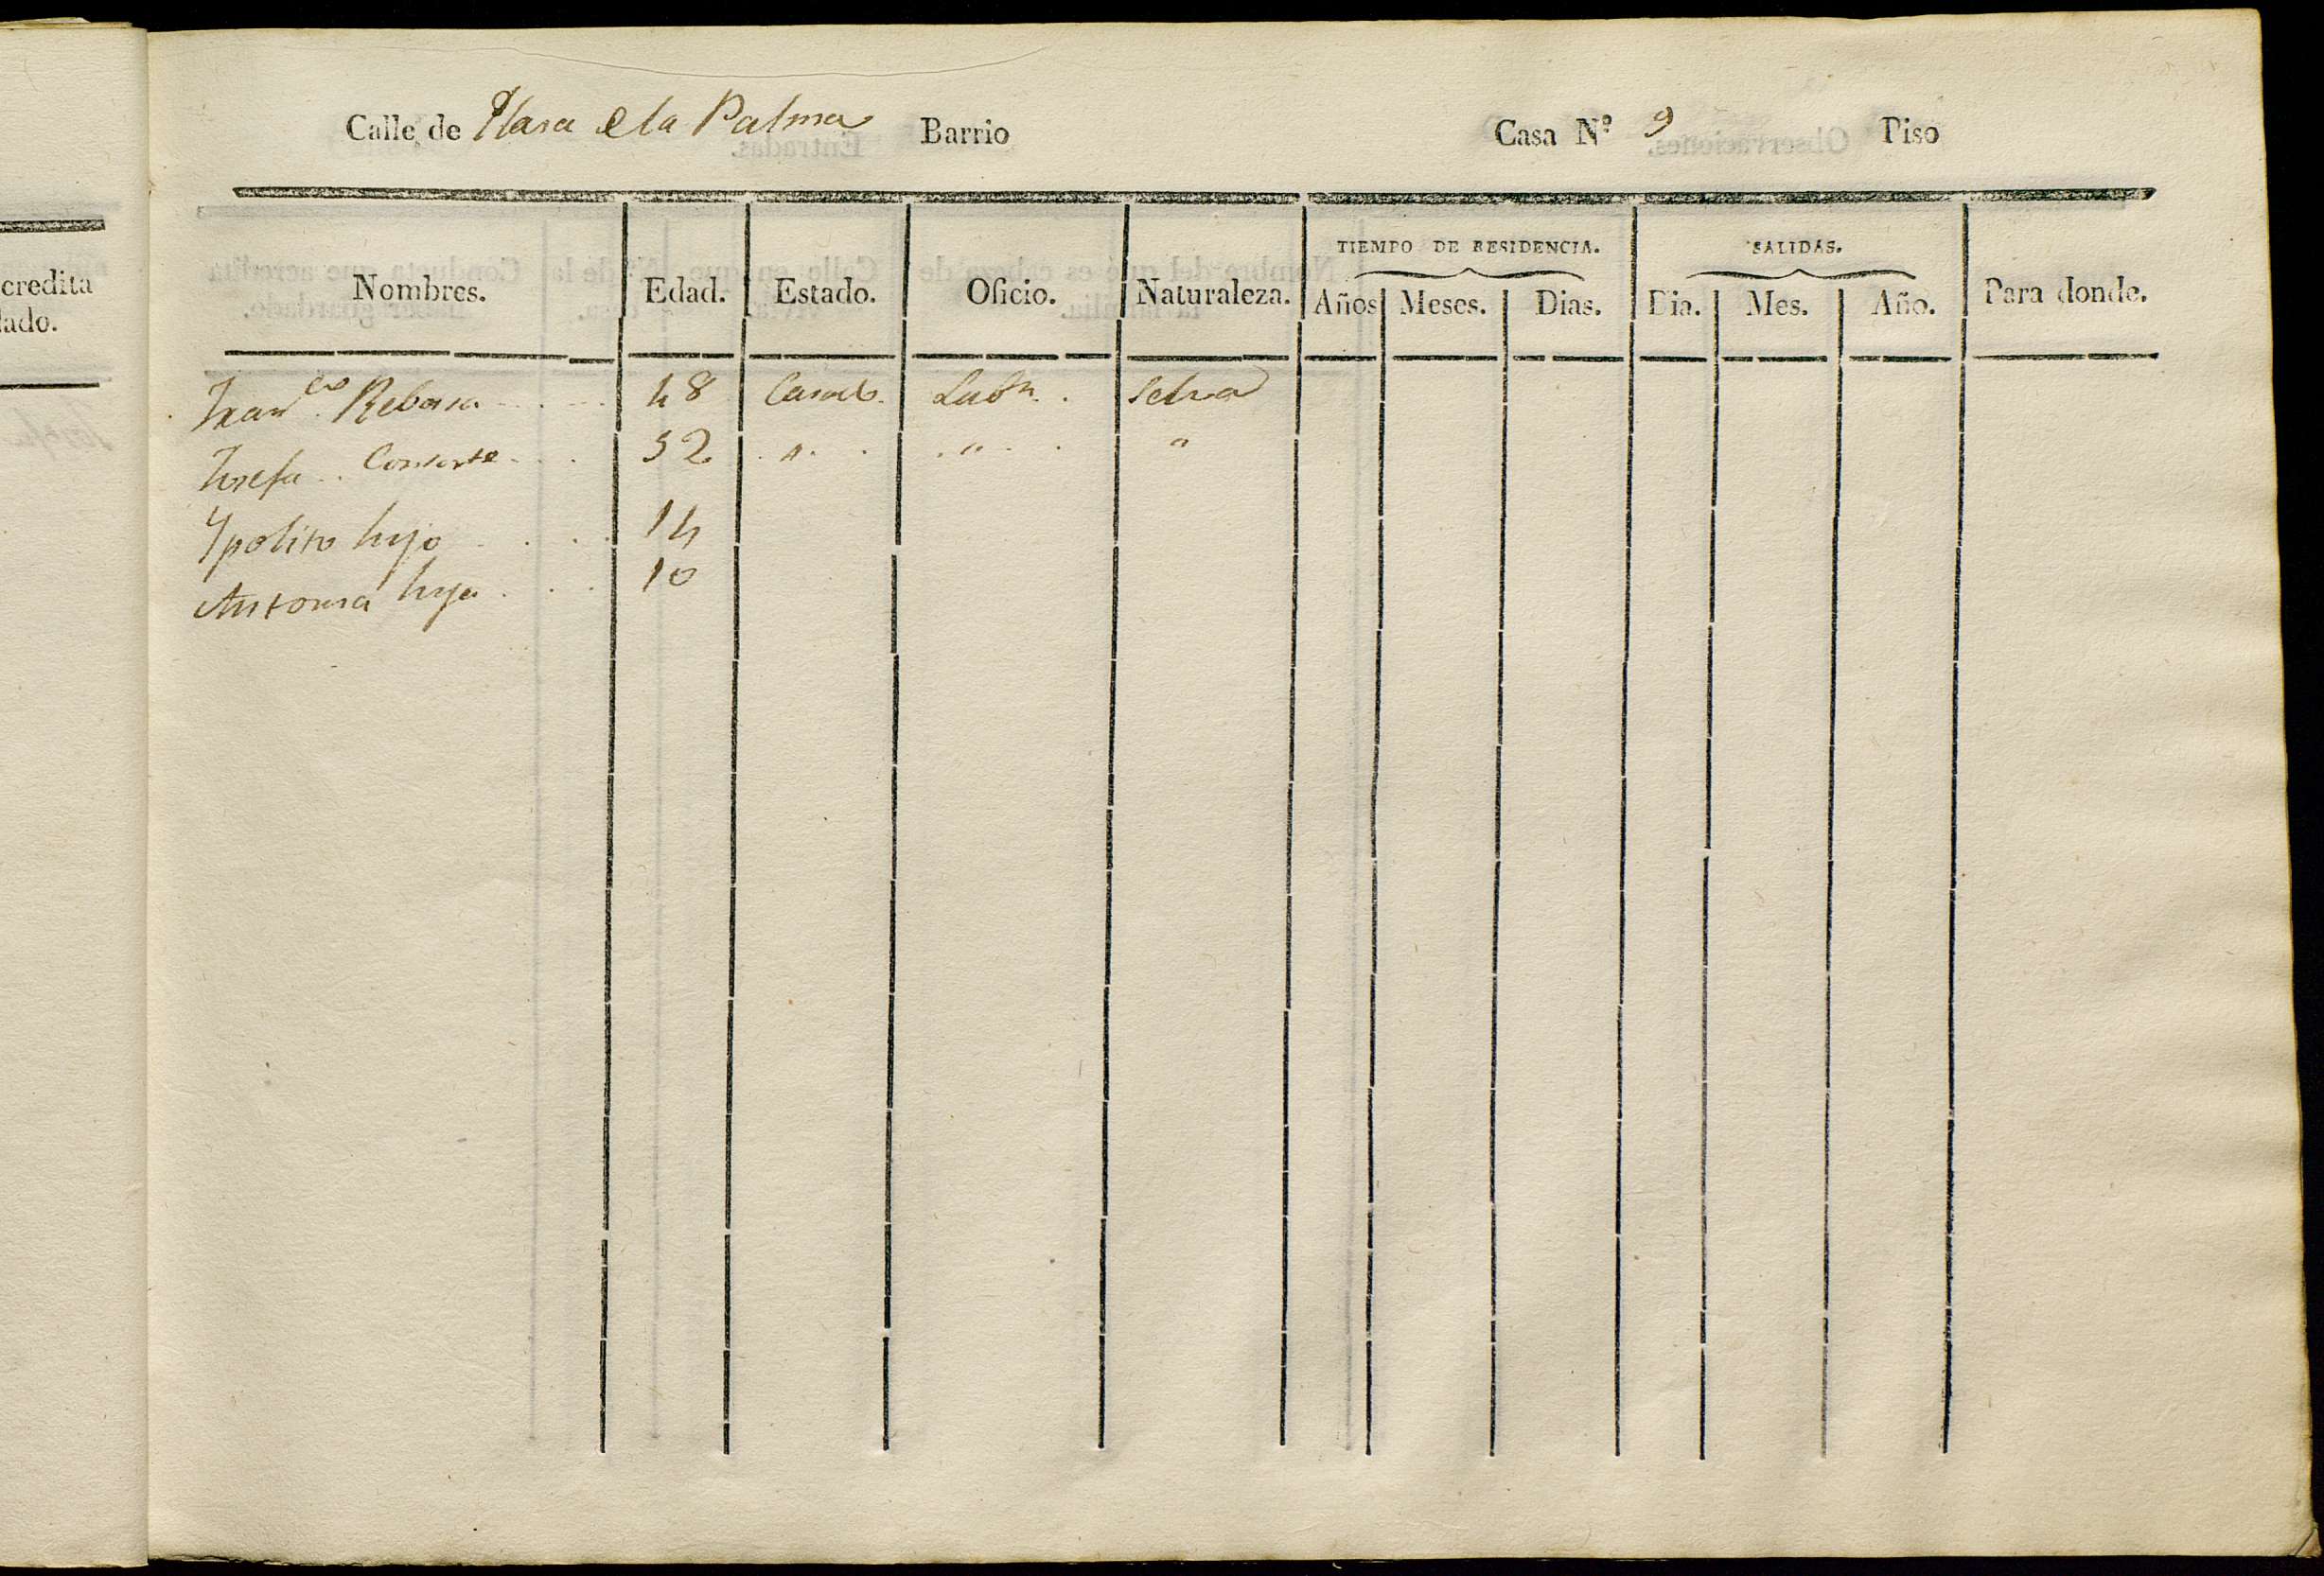 credita
lado.
Calle de Plasa e la Palma Barrio Casa Nº 9 Piso
TIEMPO DE RESIDENCIA. SALIDAS.
Nombres. Edad. Estado. Oficio. Naturaleza. Años Meses. Dias. Dia. Mes. Año. Para donde.
Franco. Rebasa 48 Casado. Labr. Selva
Josefa Consorte 52 " " "
Ypolito hijo 14
Antonia hija 10